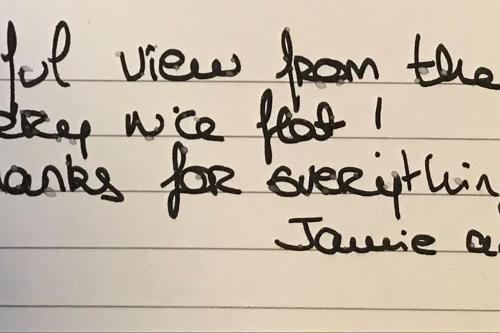 ful view from the
ery nice flat!
hanks for everythin
Jamie a